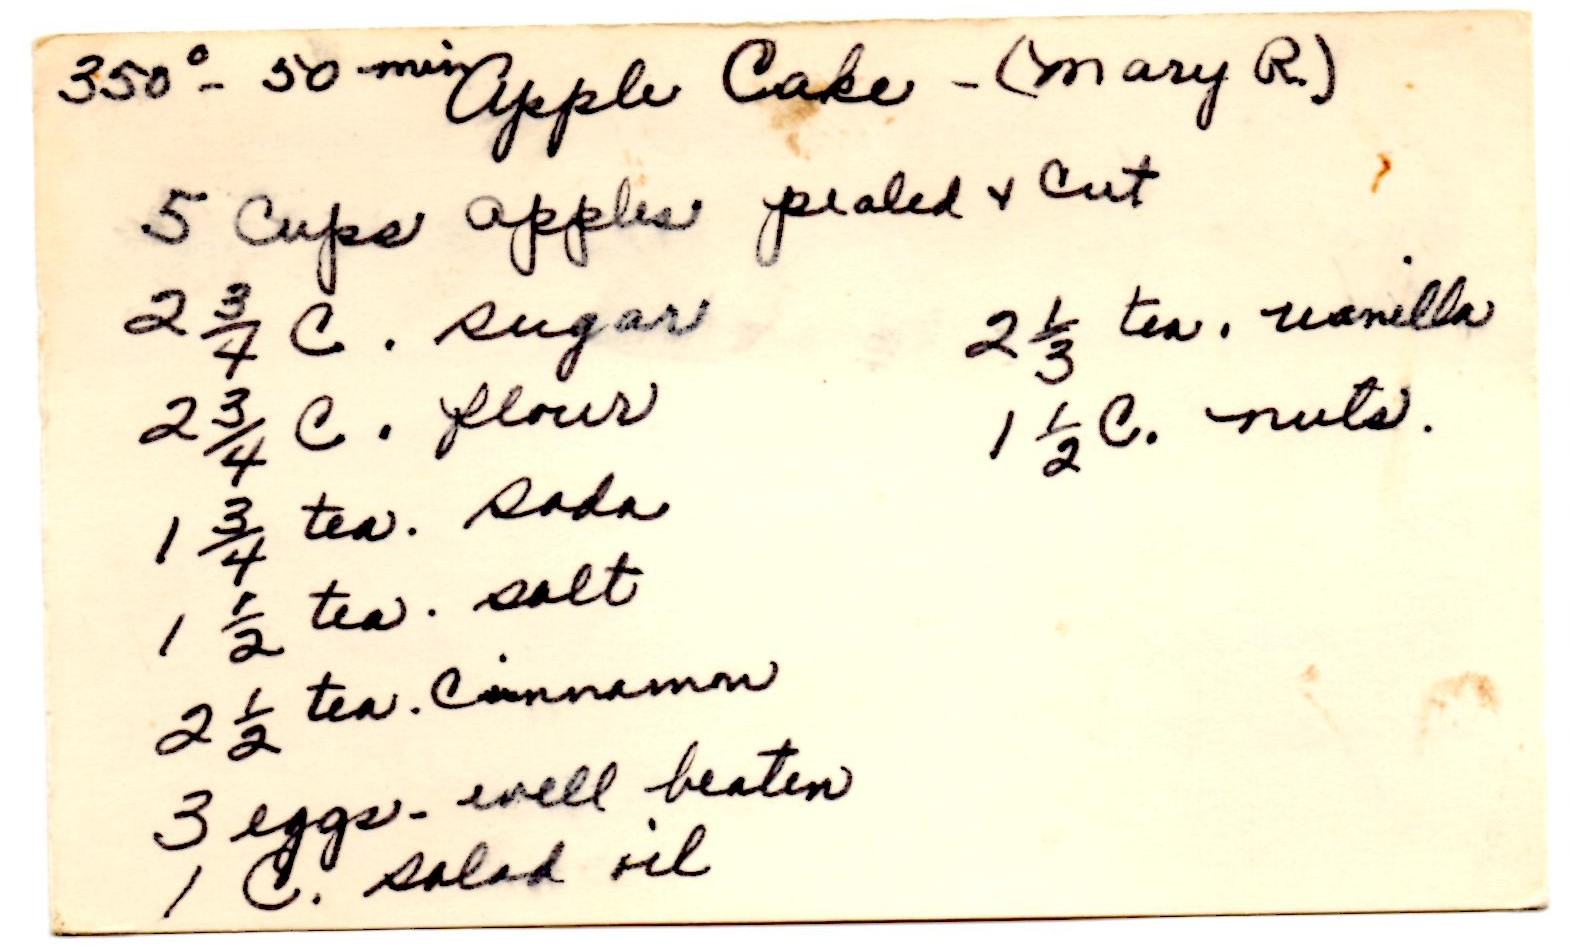 350° - 50 min Apple Cake - (Mary R.)
5 Cups apples pealed & Cut
2 3/4 C. sugar
2 3/4 C. flour
1 3/4 tea. soda
1 1/2 tea. salt
2 1/2 tea. Cinnamon
3 eggs - well beaten
1 C. salad oil
2 1/3 tea. vanilla
1 1/2 C. nuts.